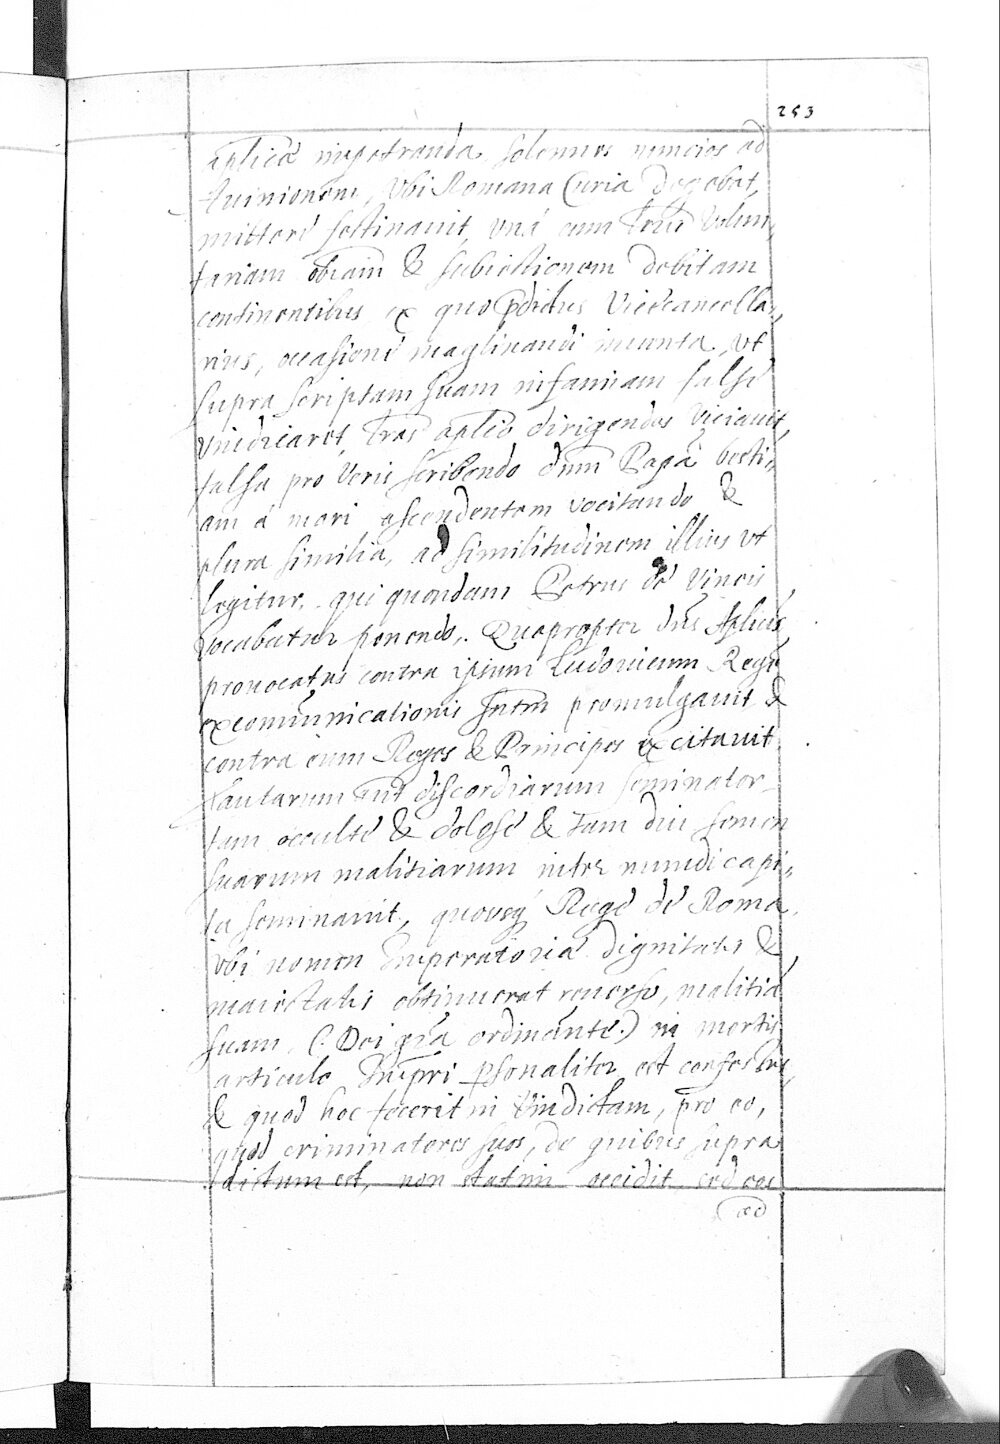 253
aplicâ impetranda solennes nuncios ad
Auinionem, Vbi Romana Curia degebat,
mitteré festinauit, vná cum Lris volun,,
tariam obiam & subiectionem debitam
continentibus ex quo pdictus Vicecancella,,
rius, occasioné maglinandi inuenta, vt
supra scriptam suam infamiam falsé
vindicaret, Lras aplco dirigendas viciauit,
falsa pro Veris scribendo dnm Papā besti,,
am á mari ascendentem vocitando &
plura similia, ad similitudinem illius vt
legitur, qui quondam Petrus dé Vineis
vocabatur ponendo. Quapropter dns Aplicus
prouocatus contra ipsum Ludouicum Regē
excomūnicationis sntm promulgauit &
contra eum Reges & Principes excitauit
tantarum aut discordiarum seminator
tam occulté & dolosé & tam diu semen
suarum malitiarum inter mundi capi,,
ta seminauit, quousq Regé dé Roma,
vbi nomen Imperatoriâ dignitatis &
maiestatis obtinuerat reuerso, malitiā
suam, (: Dei grā ordinante:) in mortis
articulo Impri psonaliter est confessus,
& quod hoc fecerit in Vindictam, pro eo,
quod criminatores suos, de quibus supra
dictum est, non statim occidit, sed eos
ad